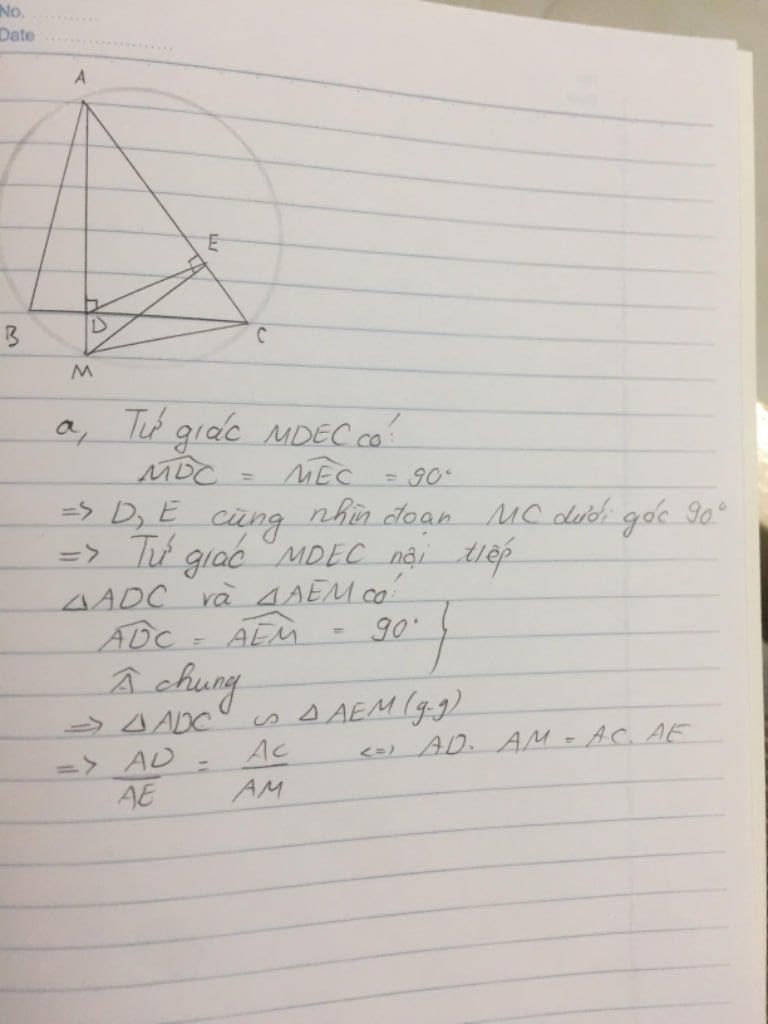 No. ..........
Date ....................
A
E
B
D
C
M
a, Tứ giác MDEC có:
\widehat{MDC} = \widehat{MEC} = 90°
=> D, E cùng nhìn đoạn MC dưới góc 90°
=> Tứ giác MDEC nội tiếp
△ADC và △AEM có:
\widehat{ADC} = \widehat{AEM} = 90° }
Â chung
=> △ADC ∽ △AEM (g-g)
=> AD/AE = AC/AM <=> AD. AM = AC. AE